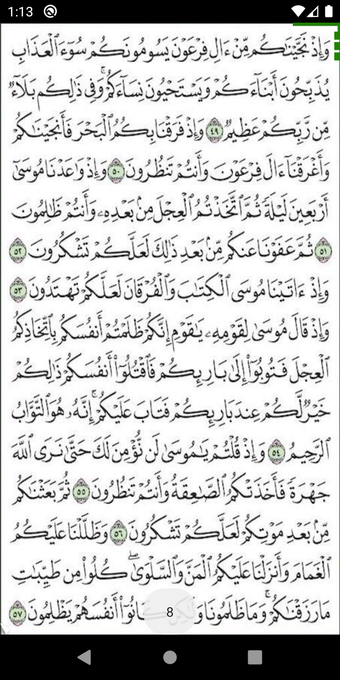 1:13
وَإِذْ نَجَّيْنَاكُم مِّنْ ءَالِ فِرْعَوْنَ يَسُومُونَكُمْ سُوٓءَ ٱلْعَذَابِ
يُذَبِّحُونَ أَبْنَآءَكُمْ وَيَسْتَحْيُونَ نِسَآءَكُمْ ۚ وَفِى ذَٰلِكُم بَلَآءٌ
مِّن رَّبِّكُمْ عَظِيمٌ ٤٩ وَإِذْ فَرَقْنَا بِكُمُ ٱلْبَحْرَ فَأَنجَيْنَاكُمْ
وَأَغْرَقْنَآ ءَالَ فِرْعَوْنَ وَأَنتُمْ تَنظُرُونَ ٥٠ وَإِذْ وَٰعَدْنَا مُوسَىٰٓ
أَرْبَعِينَ لَيْلَةً ثُمَّ ٱتَّخَذْتُمُ ٱلْعِجْلَ مِنۢ بَعْدِهِۦ وَأَنتُمْ ظَالِمُونَ
٥١ ثُمَّ عَفَوْنَا عَنكُم مِّنۢ بَعْدِ ذَٰلِكَ لَعَلَّكُمْ تَشْكُرُونَ ٥٢
وَإِذْ ءَاتَيْنَا مُوسَى ٱلْكِتَابَ وَٱلْفُرْقَانَ لَعَلَّكُمْ تَهْتَدُونَ ٥٣
وَإِذْ قَالَ مُوسَىٰ لِقَوْمِهِۦ يَاقَوْمِ إِنَّكُمْ ظَلَمْتُمْ أَنفُسَكُم بِٱتِّخَاذِكُمُ
ٱلْعِجْلَ فَتُوبُوٓا۟ إِلَىٰ بَارِئِكُمْ فَٱقْتُلُوٓا۟ أَنفُسَكُمْ ذَٰلِكُمْ
خَيْرٌ لَّكُمْ عِندَ بَارِئِكُمْ فَتَابَ عَلَيْكُمْ ۚ إِنَّهُۥ هُوَ ٱلتَّوَّابُ
ٱلرَّحِيمُ ٥٤ وَإِذْ قُلْتُمْ يَامُوسَىٰ لَن نُّؤْمِنَ لَكَ حَتَّىٰ نَرَى ٱللَّهَ
جَهْرَةً فَأَخَذَتْكُمُ ٱلصَّاعِقَةُ وَأَنتُمْ تَنظُرُونَ ٥٥ ثُمَّ بَعَثْنَاكُم
مِّنۢ بَعْدِ مَوْتِكُمْ لَعَلَّكُمْ تَشْكُرُونَ ٥٦ وَظَلَّلْنَا عَلَيْكُمُ
ٱلْغَمَامَ وَأَنزَلْنَا عَلَيْكُمُ ٱلْمَنَّ وَٱلسَّلْوَىٰ ۖ كُلُوا۟ مِن طَيِّبَاتِ
مَا رَزَقْنَاكُمْ ۖ وَمَا ظَلَمُونَا وَلَٰكِن كَانُوٓا۟ أَنفُسَهُمْ يَظْلِمُونَ ٥٧
8